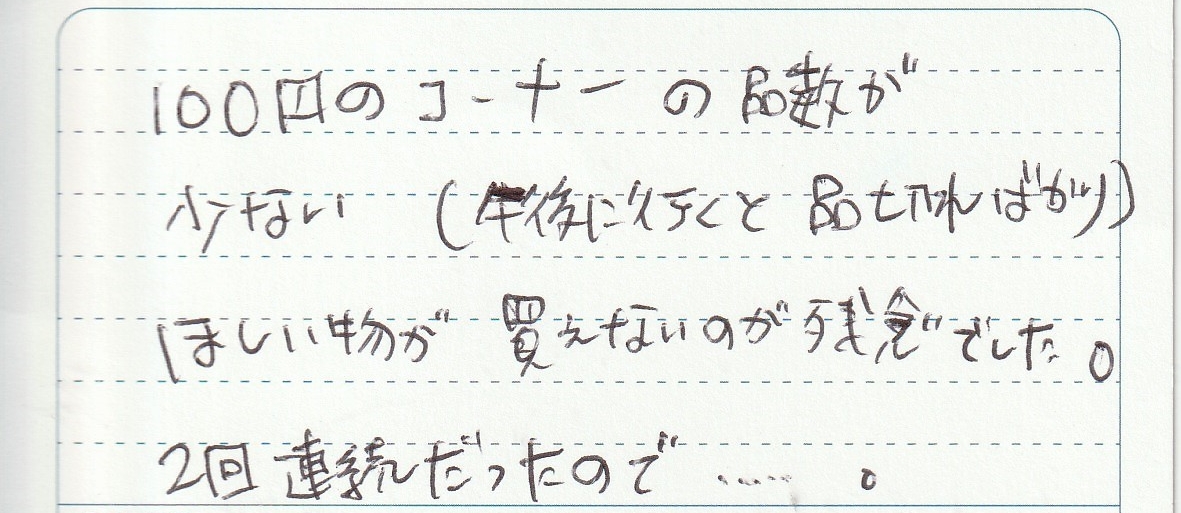 100円のコーナーの品数が
少ない (午後に行くと品切ればかり)
ほしい物が買えないのが残念でした。
2回連続だったので……。